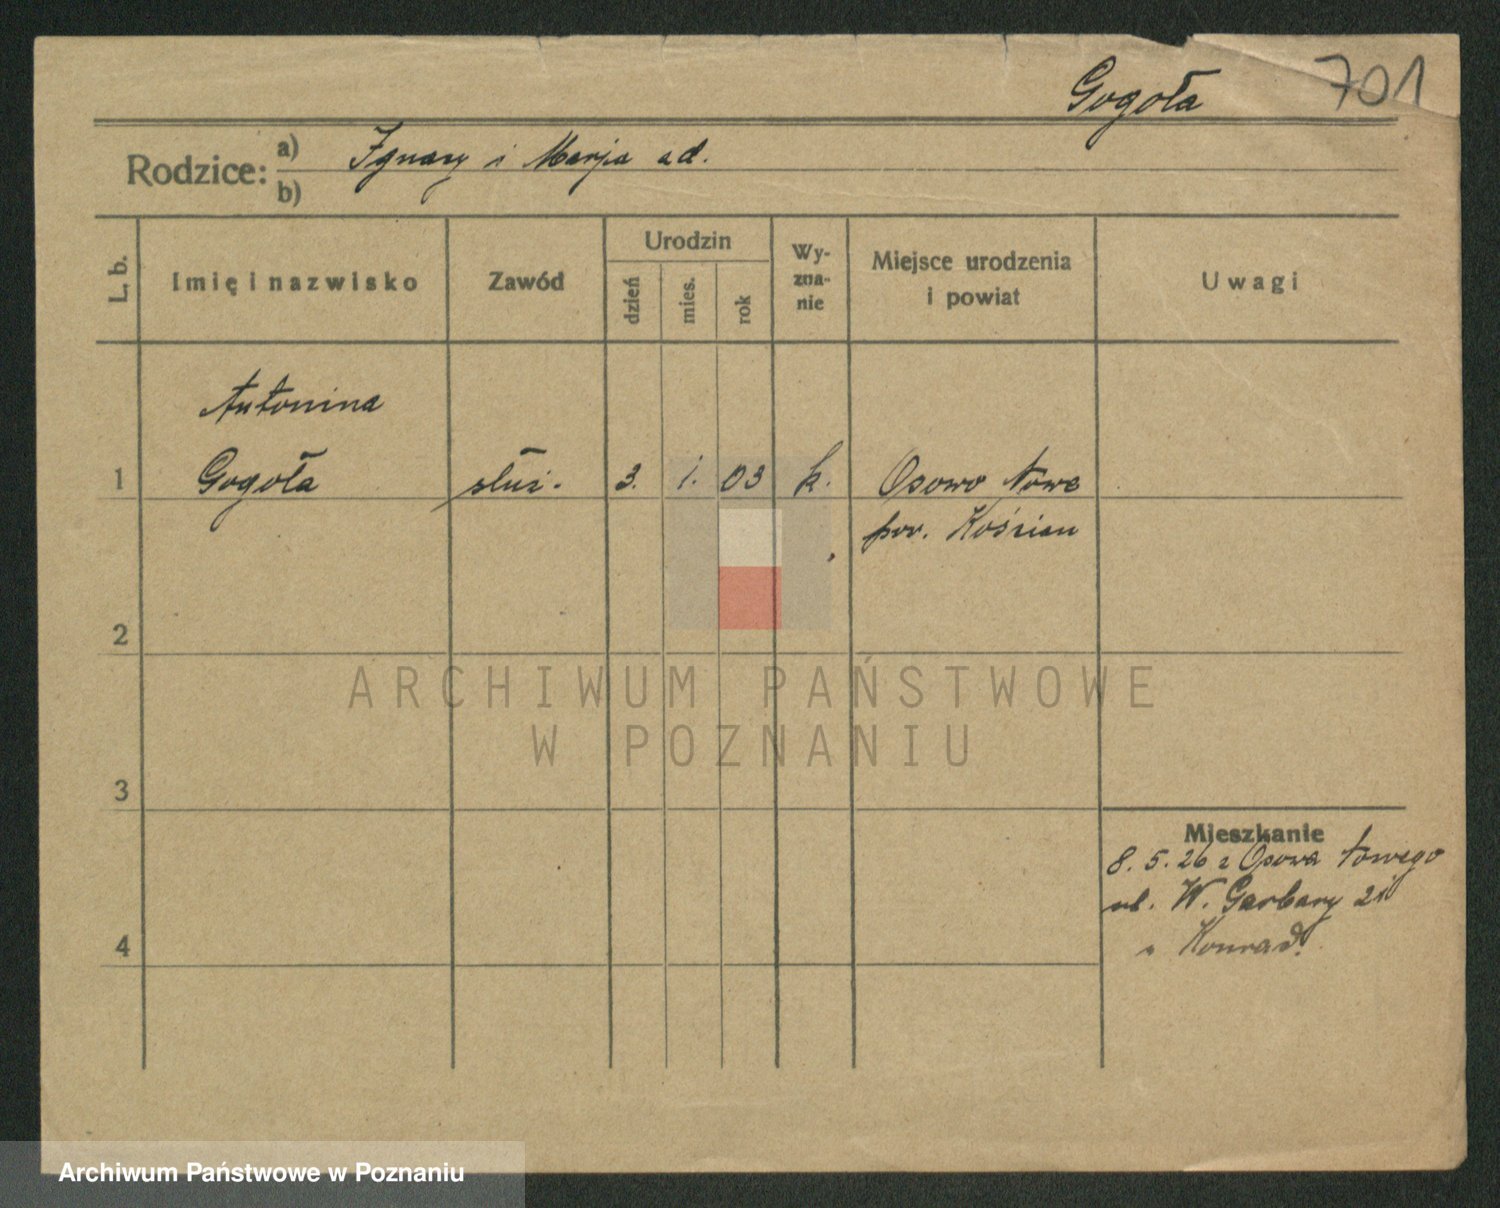 Gogoła 701
Rodzice: a) Ignacy i Marja ad.
b)
L. b.
Imię i nazwisko
Zawód
Urodzin
dzień
mies.
rok
Wy-
zna-
nie
Miejsce urodzenia
i powiat
Uwagi
Antonina
1 Gogoła służ. 3. 1. 03 k. Osowo Nowe
pow. Kościan
2
ARCHIWUM PAŃSTWOWE
W POZNANIU
3
Mieszkanie
8. 5. 26 z Osowa Nowego
ul. W. Garbary 21
Konrad.
4
Archiwum Państwowe w Poznaniu